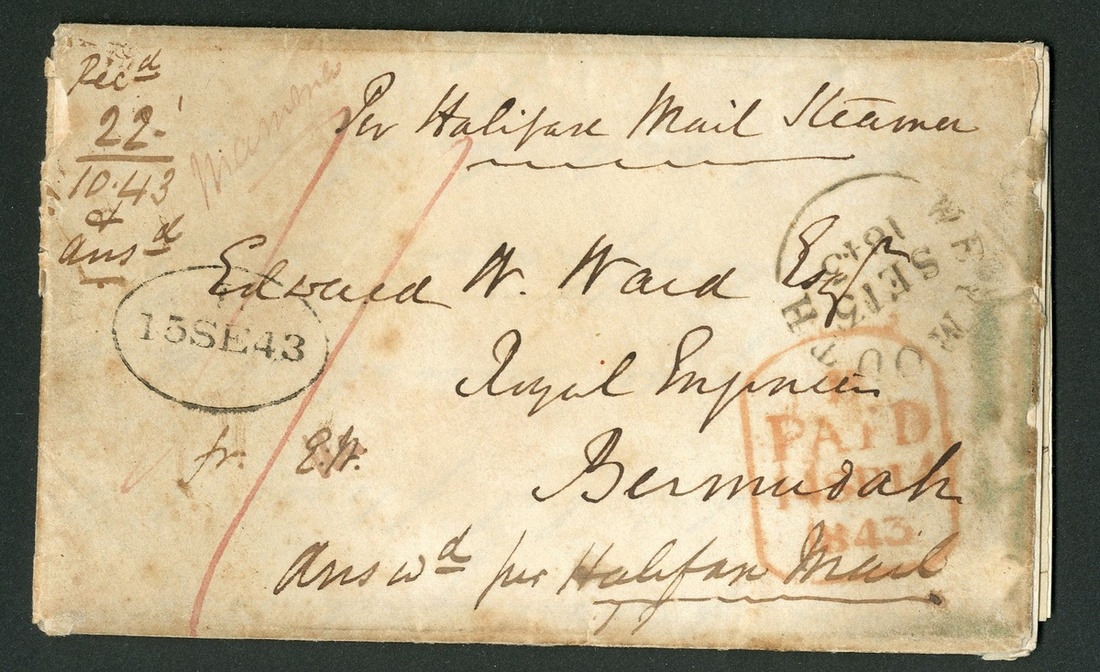 Recd
22
10.43
&
ansd
Per Halifax Mail Steamer
Edward W. Ward Esqr
Royal Engineers
Bermudah
fr. E.W.
Answd per Halifax Mail
15SE43
SE15
1843
PAID
1843